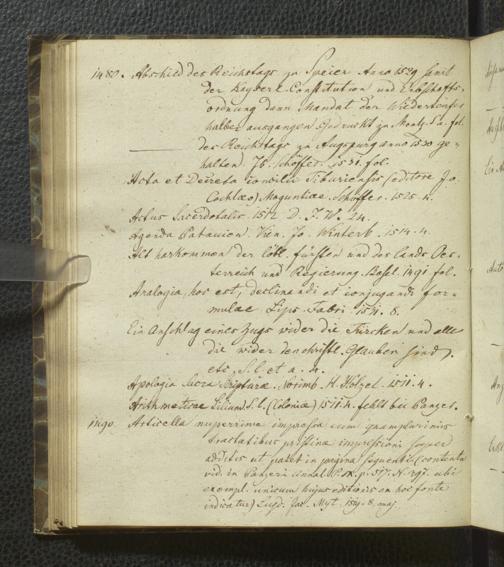 1480. Abschied des Reichstags zu Speier Anno 1529 samt
der Kayserl. Constitution und Erbschafts-
ordnung dann Mandat der Wiedertaufer
halber ausgangen Gedruckt zu Mentz s. a. fol.
des Reichstags zu Augspurg anno 1530 ge-
halten Jo. Schöffer. 1531. fol.
Acta et Decreta concilii Tiburiensis (editore Jo.
Cochlaeo) Moguntiae Schöffer. 1525. 4.
Actus Sacerdotalis. 1512. D. J. W. 24.
Agenda Patavien. Vien. Jo. Winterb. 1514. 4.
Alt harkommen der löbl. fürsten und des Lands Oes-
terreich und Regierung. Basel. 1491 fol.
Analogia, hoc est, declinandi et conjugandi for-
mulae Lips. Fabri. 1531. 8.
Ein Anschlag eines Zugs wider die Türcken und alle
die wider den christl. Glauben sind
etc. S. l. et a. 4.
Apologia Sacre Scripturæ. Norimb. H. Hölzel. 1511. 4.
Arithmeticae Lilium S. l. (Coloniae) 1511. 4. fehlt bei Panzer.
Articella nuperrime impressa cum quamplurimis
tractatibus pristinae impressioni super
additis ut patet in pagina sequenti (contenta
vid. in Panzeri Annal. ubi
exempl. unicum hujus editionis ex hoc fonte
indicatur) Lugd. Jac. Myt. 1519. 8. maj.